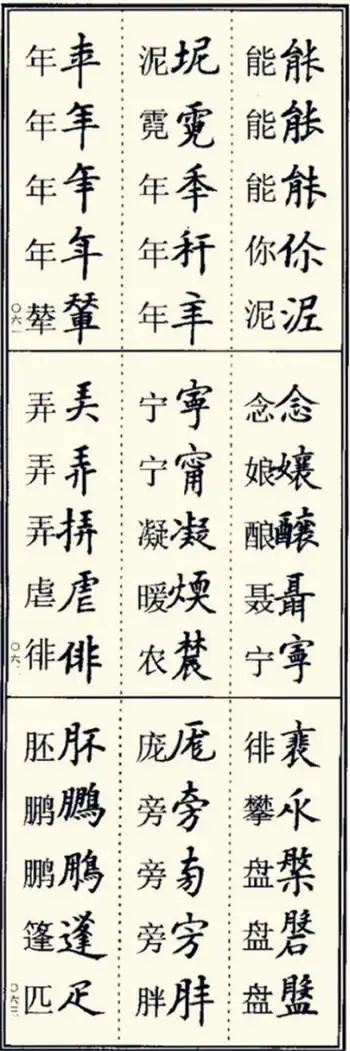 能能
能能
能能
你你
泥泥
泥坭
霓霓
年秊
年
年
年
年年
年年
年年
辇輦
〇六一
念念
娘孃
酿釀
聂聶
宁寧
宁寧
宁甯
凝凝
暖煗
农
弄
弄弄
弄挵
虐虐
徘俳
〇六二
徘裵
攀
盘槃
盘磐
盘盤
庞厖
旁旁
旁
旁
胖胖
胚肧
鹏鵬
鹏鵬
篷蓬
匹疋
〇六三